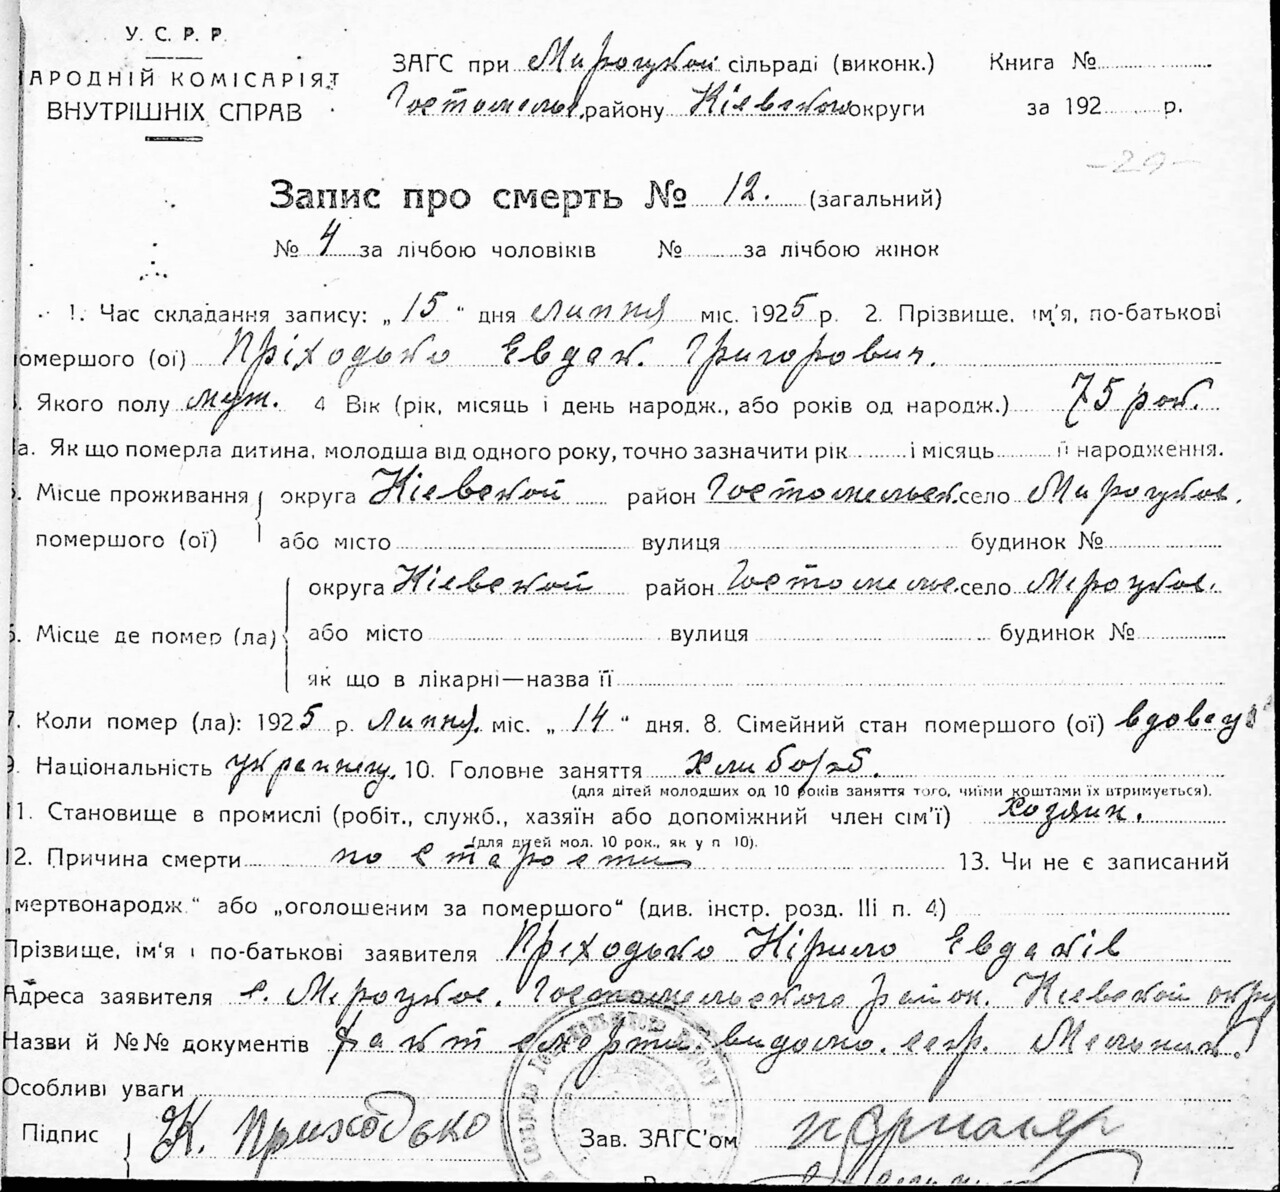 У. С. Р. Р.
АРОДНІЙ КОМІСАРІЯТ
ВНУТРІШНІХ СПРАВ
ЗАГС при Мироцкой сільраді (виконк.) Книга №
Гостомельс. району Кіевской округи за 192 р.
-29-
Запис про смерть № 12. (загальний)
№ 4 за лічбою чоловіків № за лічбою жінок
1. Час складання запису: „15“ дня липня міс. 1925 р. 2. Прізвище, ім'я, по-батькові
омершого (ої) Пріходько Евдак. Григорович.
Якого полу муж. 4 Вік (рік, місяць і день народж., або років од народж.) 75 рок.
а. Як що померла дитина, молодша від одного року, точно зазначити рік і місяць її народження.
Місце проживання округа Кіевской район Гостомельск. село Мироцкое.
помершого (ої) або місто вулиця будинок №
округа Кіевской район Гостомельс. село Мироцкое.
Місце де помер (ла) або місто вулиця будинок №
як що в лікарні—назва її
7. Коли помер (ла): 1925 р. липня. міс. „14“ дня. 8. Сімейний стан помершого (ої) вдовец
9. Національність украинец. 10. Головне заняття хлибороб.
(для дітей молодших од 10 років заняття того, чиїми коштами їх втримується).
11. Становище в промислі (робіт., служб., хазяїн або допоміжний член сім'ї) хозяин.
(для дітей мол. 10 рок., як у п 10).
12. Причина смерти по старости 13. Чи не є записаний
„мертвонародж.“ або „оголошеним за помершого“ (див. інстр. розд. III п. 4)
Прізвище, ім'я і по-батькові заявителя Пріходько Кірило Евдаків
Адреса заявителя с. Мироцкое. Гостомельского район. Киевской окру
Назви й №№ документів факт смерти видомо. секр.
Особливі уваги
Підпис К. Приходько Зав. ЗАГС'ом